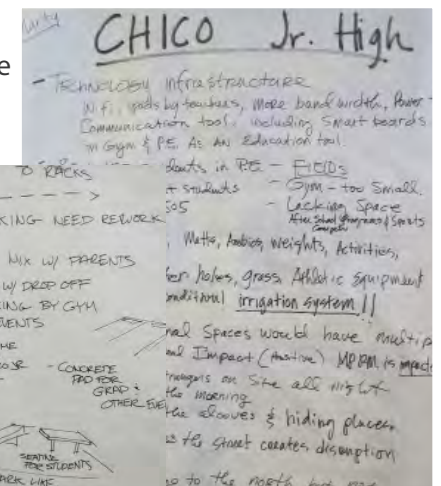 CHICO Jr. High
- Technology infrastructure
Wifi, ipads by teachers, more bandwidth, Power -
Communication tool, including Smart boards
in Gym & PE As An Education tool.
students in P.E. - FIELDs
students - Gym - too Small
505 - Lacking Space
After School Programs & Sports
Compete
Matts, Aerobics, Weights, Activities,
holes, grass Athletic Equipment
irrigation system!!
Spaces would have
Impact (Positive) MPRM is
on Site all night
the morning
the alcoves & hiding places
the street creates disruption
to the north
TO RACKS
KING - NEED REWORK
MIX W/ PARENTS
W/ DROP OFF
ING BY GYM
EVENTS
- CONCRETE
PAD FOR
GRAD &
OTHER EVE
SEATING
FOR STUDENTS
ARK LIKE
e